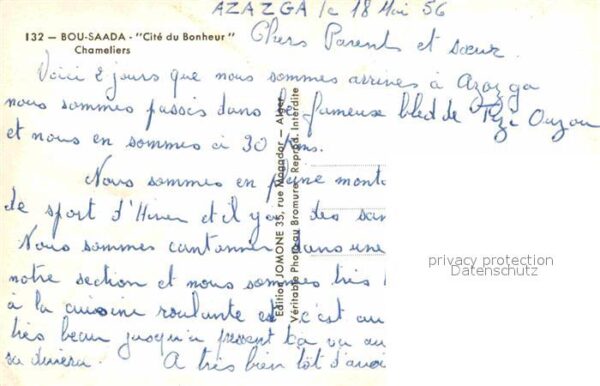 AZAZGA le 18 Mai 56
132 – BOU-SAADA - "Cité du Bonheur"
Chameliers
Chers Parents et sœur
Voici 2 jours que nous sommes arrivés à Azazga
nous sommes passés dans le fameux bled de Tizi Ouzou
et nous en sommes à 30 kms.
Nous sommes en pleine mont
de sport d'Hiver et il y a des
Nous sommes cantonner dans une
notre section et nous sommes très
à la cuisine roulante et c'est au
très beau jusqu'à present ça va
sa durera. A très bien tôt d'avoi
Edition JOMONE 35, rue Mogador – Alger
Véritable Photo au Bromure - Reprod. Interdite
privacy protection
Datenschutz